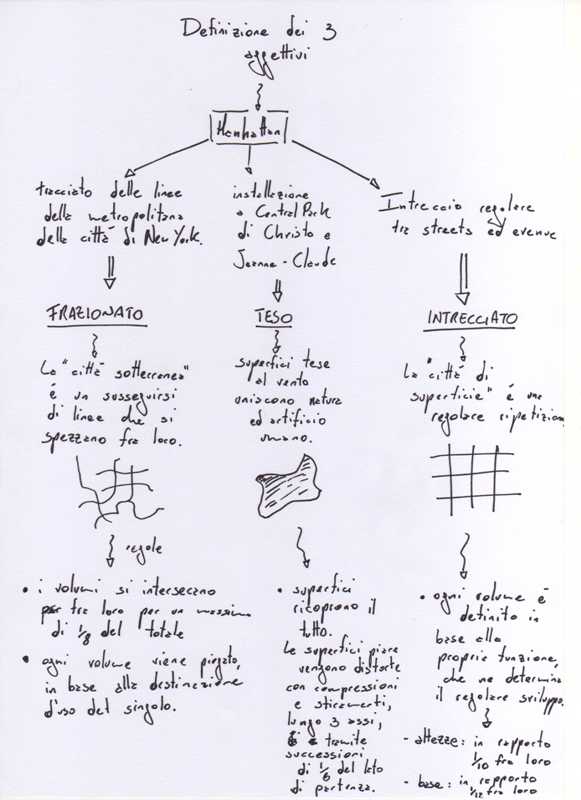 Definizione dei 3
aggettivi
Manhattan
tracciato delle linee
della metropolitana
della città di New York.
FRAZIONATO
La "città sotterranea"
é un susseguirsi
di linee che si
spezzano fra loro.
regole
• i volumi si intersecano
per fra loro per un massimo
di 1/8 del totale
• ogni volume viene piegato,
in base alla destinazione
d'uso del singolo.
installazione
a Central Park
di Christo e
Jeanne-Claude
TESO
superfici tese
al vento
uniscono natura
ed artificio
umano.
• superfici
ricoprono il
tutto.
Le superfici piane
vengono distorte
con compressioni
e stiramenti,
lungo 3 assi,
e tramite
successioni
di 1/6 del lato
di partenza.
Intreccio regolare
tra streets ed avenue
INTRECCIATO
La "città di
superficie" é una
regolare ripetizione
• ogni volume é
definito in
base alla
propria funzione,
che ne determina
il regolare sviluppo.
- altezze: in rapporto
1/10 fra loro
- base: in rapporto
1/12 fra loro